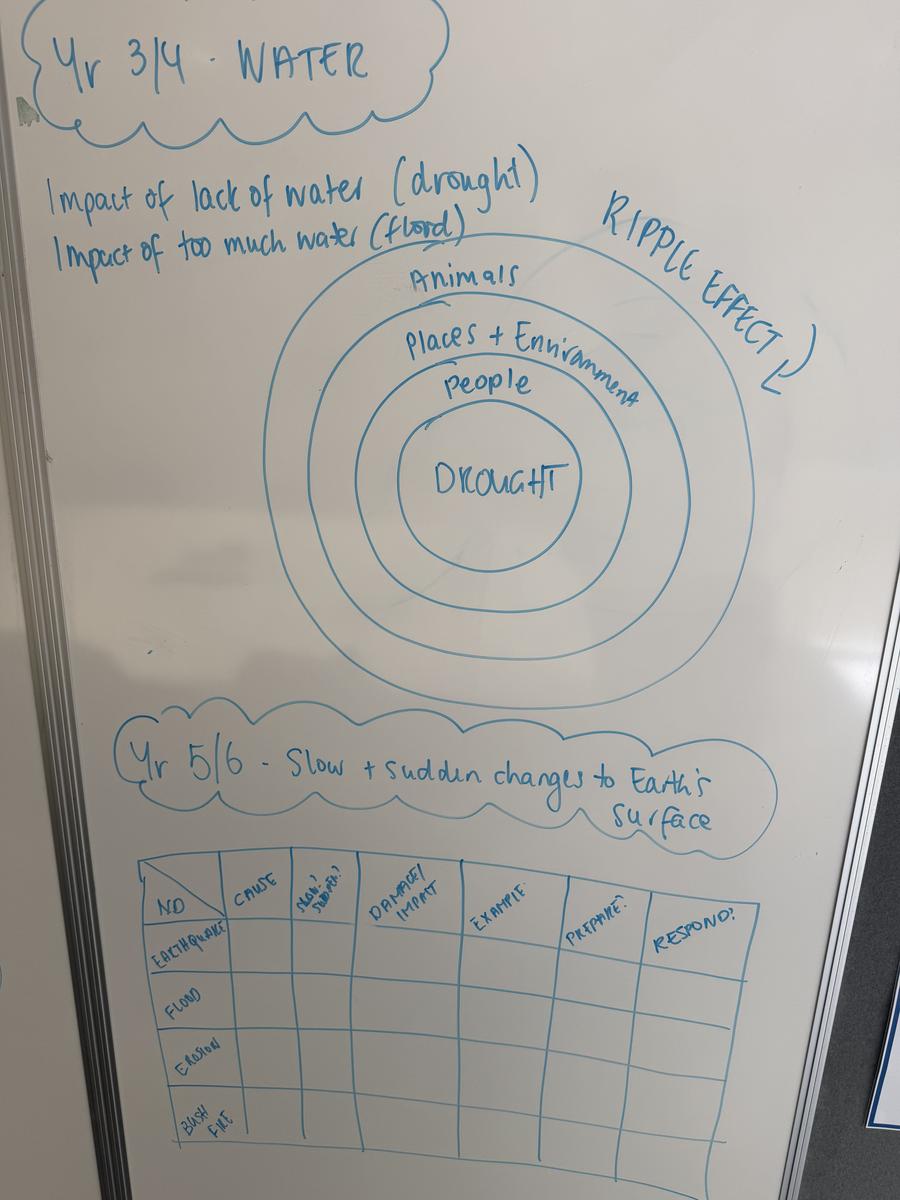 Yr 3/4 · WATER
Impact of lack of water (drought)
Impact of too much water (flood)
RIPPLE EFFECT
Animals
Places + Environment
People
DROUGHT
Yr 5/6 - Slow + sudden changes to Earth's
surface
ND
CAUSE
SLOW?
SUDDEN?
DAMAGE/
IMPACT
EXAMPLE
PREPARE?
RESPOND?
EARTHQUAKE
FLOOD
EROSION
BUSH
FIRE